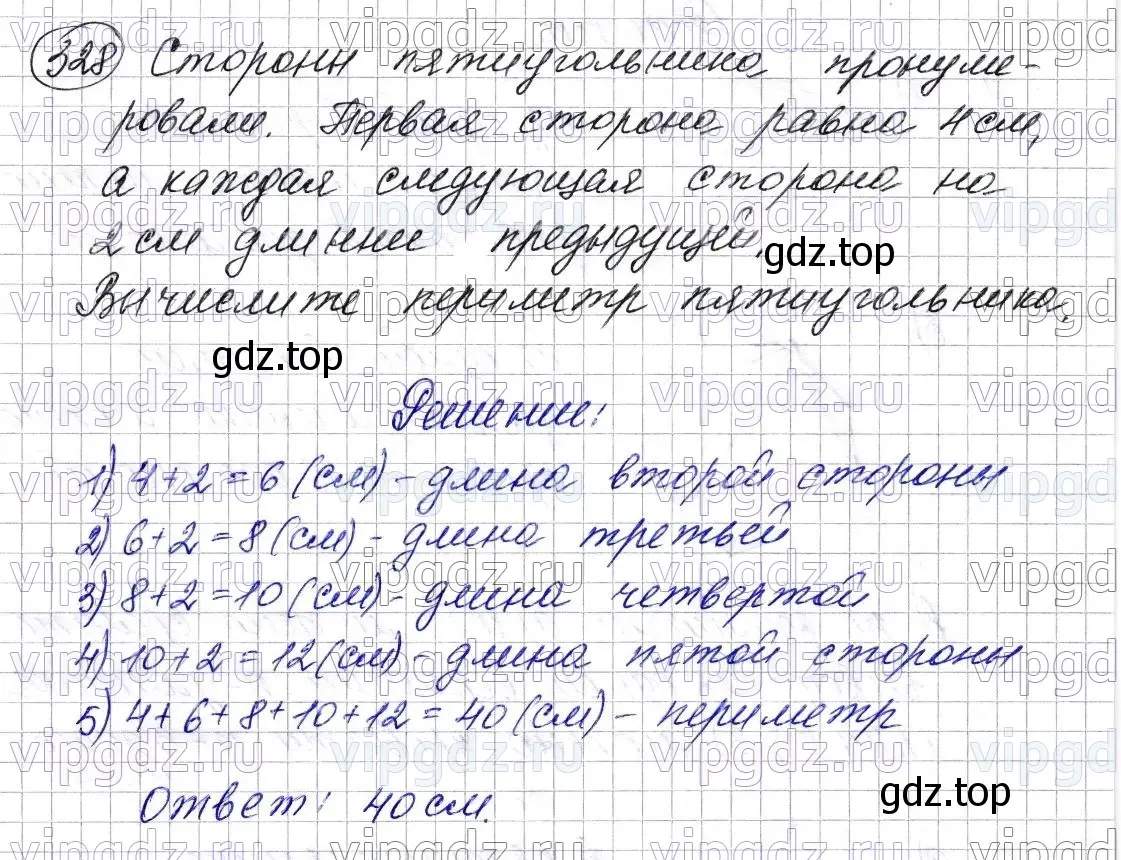 328 Стороны пятиугольника пронуме-
рованы. Первая сторона равна 4 см,
а каждая следующая сторона на
2 см длиннее предыдущей.
gdz.top
Вычислите периметр пятиугольника.
gdz.top
Решение:
1) 4+2=6 (см) - длина второй стороны
2) 6+2=8 (см) - длина третьей
3) 8+2=10 (см) - длина четвертой
4) 10+2=12 (см) - длина пятой стороны
5) 4+6+8+10+12=40 (см) - периметр
gdz.top
Ответ: 40 см.